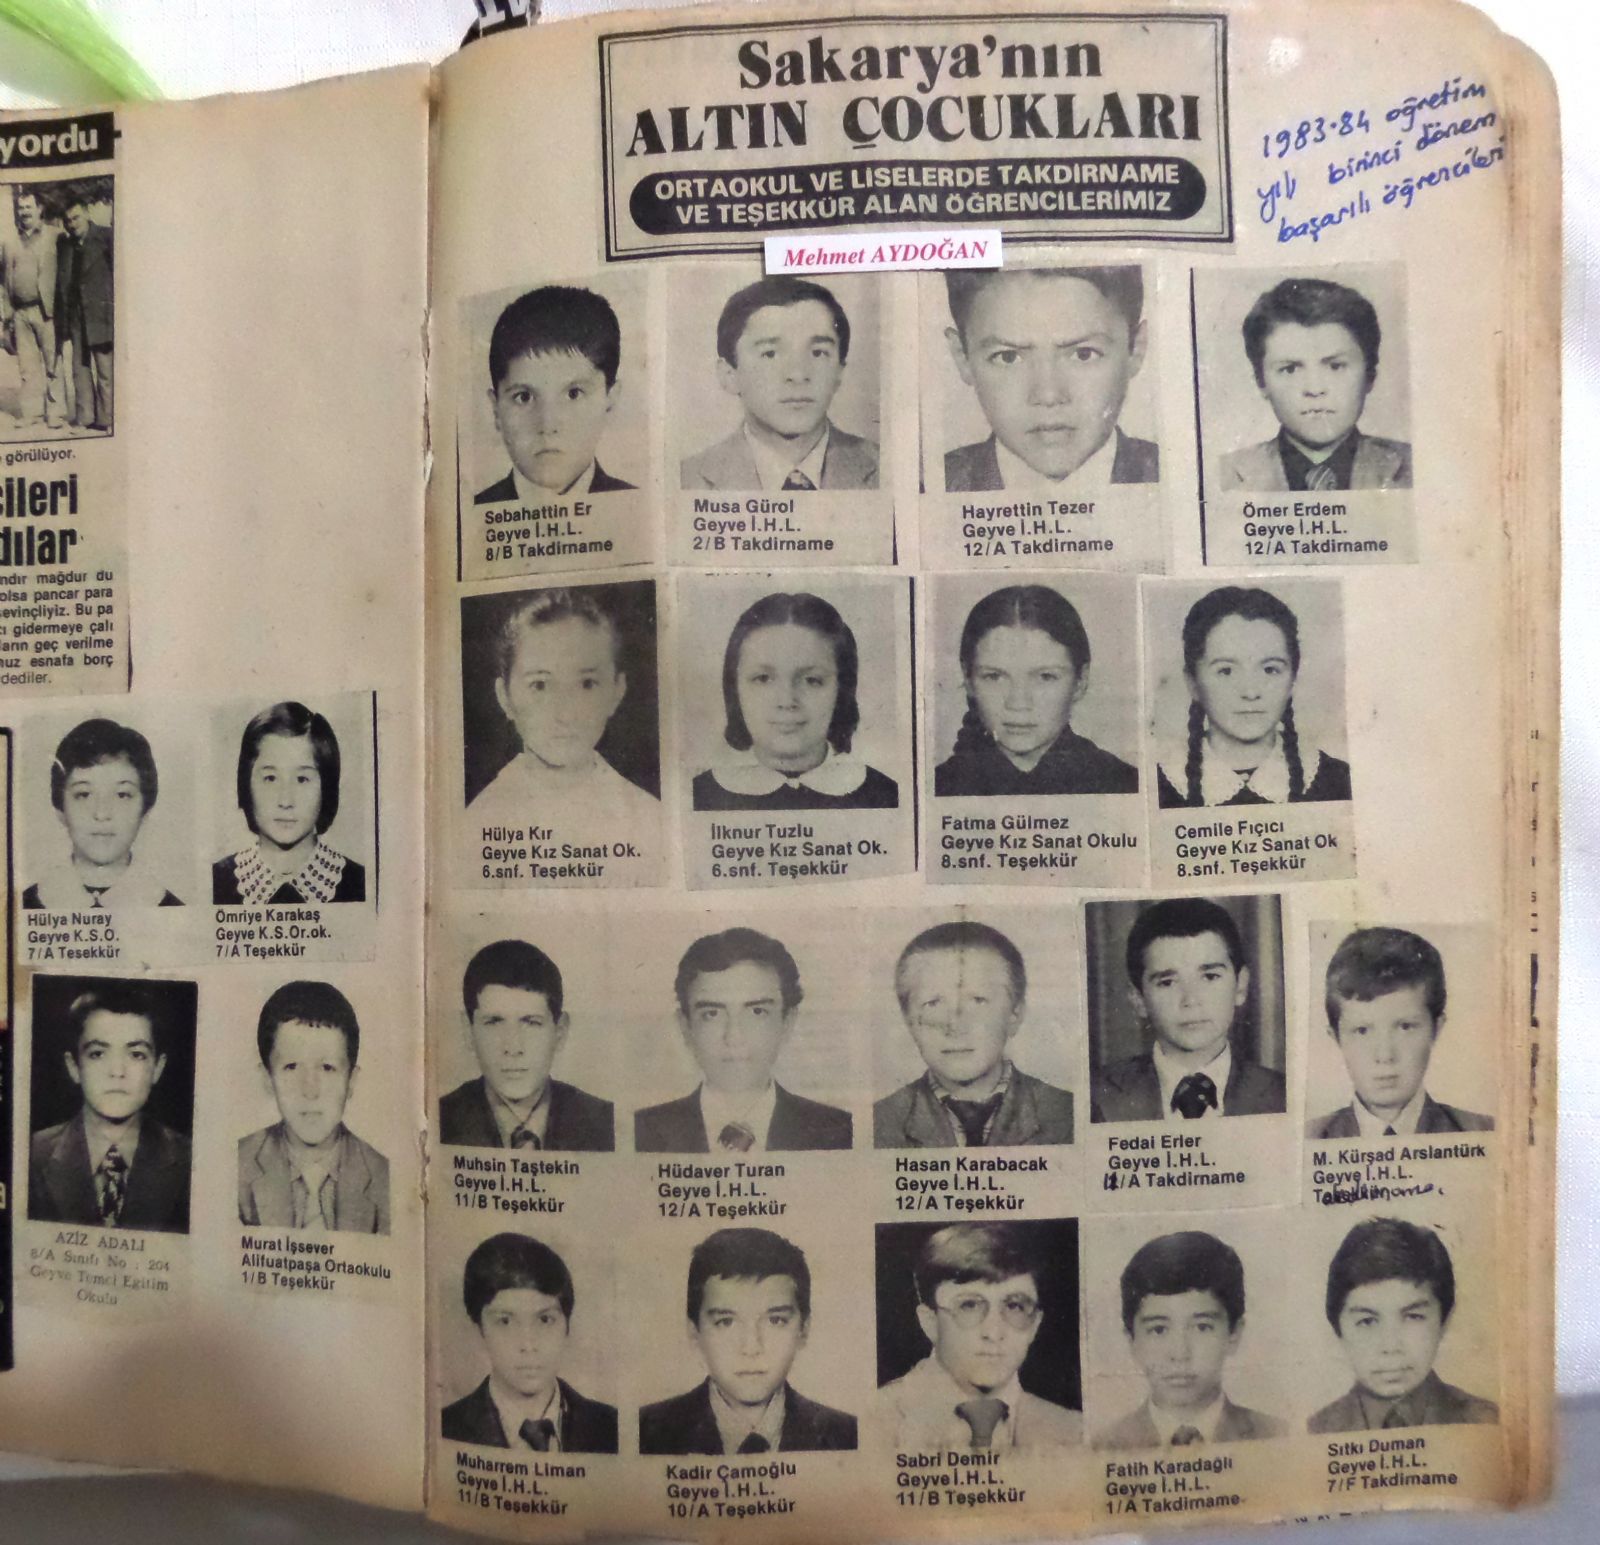 yordu
görülüyor.
ileri
dılar
ndır mağdur du
olsa pancar para
evinçliyiz. Bu pa
cı gidermeye çalı
ların geç verilme
nuz esnafa borç
dediler.
Hülya Nuray
Geyve K.S.O.
7/A Tesekkür
Ömriye Karakaş
Geyve K.S.Or.ok.
7/A Teşekkür
AZİZ ADALI
8/A Sınıfı No : 204
Geyve Temel Eğitim
Okulu
Murat İşsever
Alifuatpaşa Ortaokulu
1/B Teşekkür
Sakarya'nın
ALTIN ÇOCUKLARI
ORTAOKUL VE LİSELERDE TAKDİRNAME
VE TEŞEKKÜR ALAN ÖĞRENCİLERİMİZ
Mehmet AYDOĞAN
1983-84 öğretim
yılı birinci dönem
başarılı öğrencileri
Sebahattin Er
Geyve İ.H.L.
8/B Takdirname
Musa Gürol
Geyve İ.H.L.
2/B Takdirname
Hayrettin Tezer
Geyve İ.H.L.
12/A Takdirname
Ömer Erdem
Geyve İ.H.L.
12/A Takdirname
Hülya Kır
Geyve Kız Sanat Ok.
6.snf. Teşekkür
İlknur Tuzlu
Geyve Kız Sanat Ok.
6.snf. Teşekkür
Fatma Gülmez
Geyve Kız Sanat Okulu
8.snf. Teşekkür
Cemile Fıçıcı
Geyve Kız Sanat Ok
8.snf. Teşekkür
Muhsin Taştekin
Geyve İ.H.L.
11/B Teşekkür
Hüdaver Turan
Geyve İ.H.L.
12/A Teşekkür
Hasan Karabacak
Geyve İ.H.L.
12/A Teşekkür
Fedai Erler
Geyve İ.H.L.
/A Takdirname
M. Kürşad Arslantürk
Geyve İ.H.L.
Muharrem Liman
Geyve İ.H.L.
11/B Teşekkür
Kadir Çamoğlu
Geyve İ.H.L.
10/A Teşekkür
Sabri Demir
Geyve İ.H.L.
11/B Teşekkür
Fatih Karadağlı
Geyve İ.H.L.
1/A Takdirname
Sıtkı Duman
Geyve İ.H.L.
7/F Takdirname